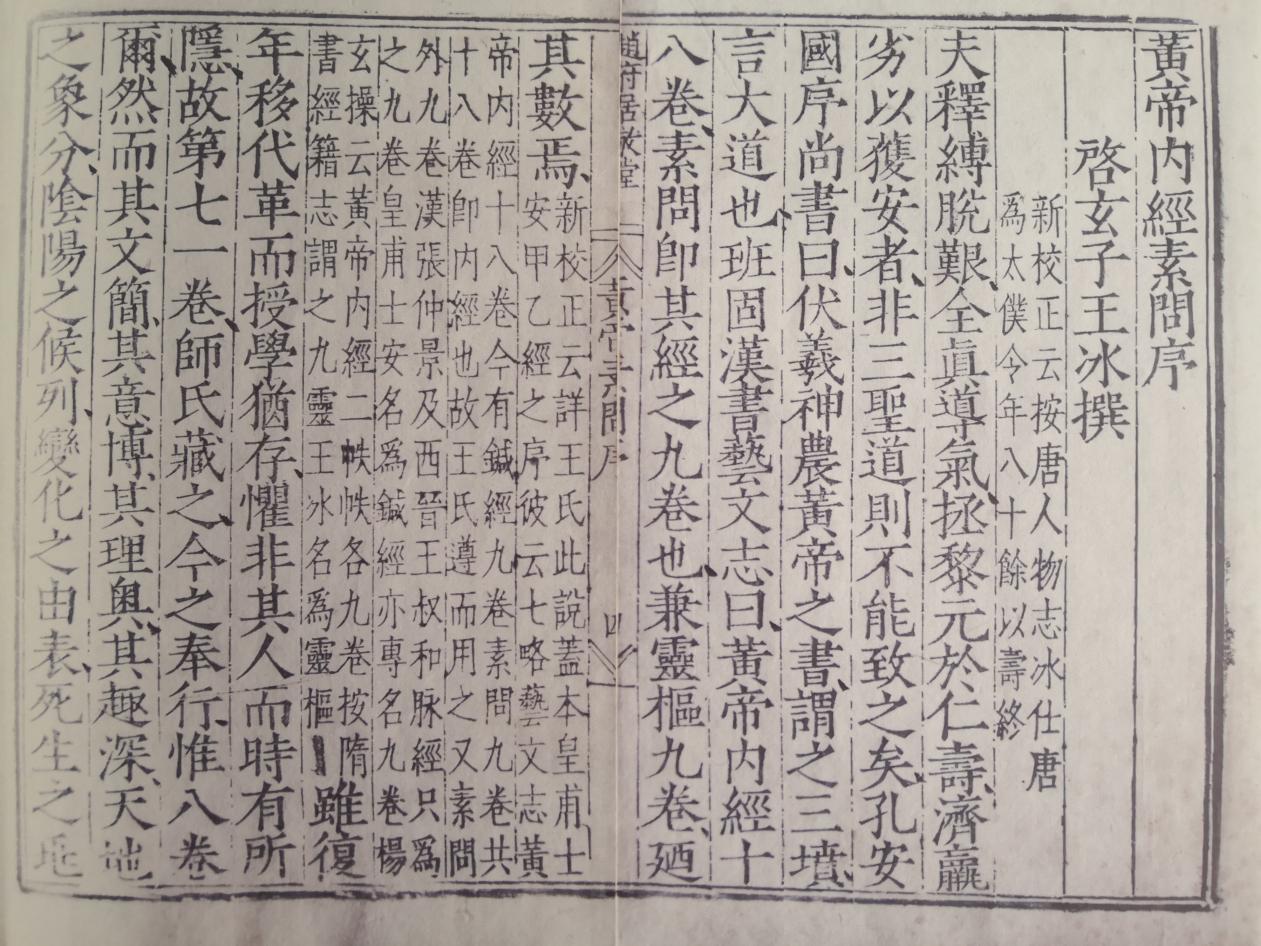 黃帝内經素問序
啓玄子王冰撰
新校正云按唐人物志冰仕唐
爲太僕令年八十餘以壽終
夫釋縛脫艱、全眞導氣、拯黎元於仁壽、濟羸
劣以獲安者、非三聖道則不能致之矣、孔安
國序尚書曰、伏羲神農黃帝之書、謂之三墳、
言大道也、班固漢書藝文志曰、黃帝内經十
八卷、素問卽其經之九卷也、兼靈樞九卷、廼
趙府居敬堂
黃帝素問序
四
其數焉、
新校正云詳王氏此說蓋本皇甫士
安甲乙經之序彼云七略藝文志黃
帝内經十八卷今有鍼經九卷素問九卷共
十八卷卽内經也故王氏遵而用之又素問
外九卷漢張仲景及西晉王叔和脉經只爲
之九卷皇甫士安名爲鍼經亦專名九卷楊
玄操云黃帝内經二帙帙各九卷按隋
書經籍志謂之九靈王冰名爲靈樞
雖復
年移代革而授學猶存、懼非其人而時有所
隱、故第七一卷、師氏藏之、今之奉行、惟八卷
爾、然而其文簡、其意博、其理奥、其趣深、天地
之象分、陰陽之候列、變化之由表、死生之